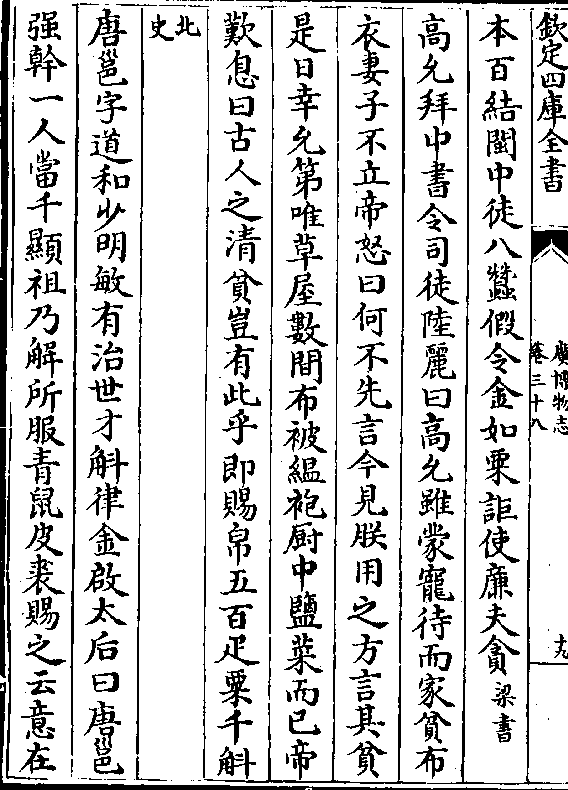 欽定四庫全書
廣博物志
卷三十八
十九
本百結閩中徒八蠶假令金如粟詎使廉夫貪梁書
高允拜中書令司徒陸麗曰高允雖蒙寵待而家貧布
衣妻子不立帝怒曰何不先言今見朕用之方言其貧
是日幸允第唯草屋數間布被縕袍厨中鹽菜而已帝
歎息曰古人之清貧豈有此乎即賜帛五百疋粟千斛
北史
唐邕字道和少明敏有治世才斛律金啟太后曰唐邕
强幹一人當千顯祖乃解所服青鼠皮裘賜之云意在